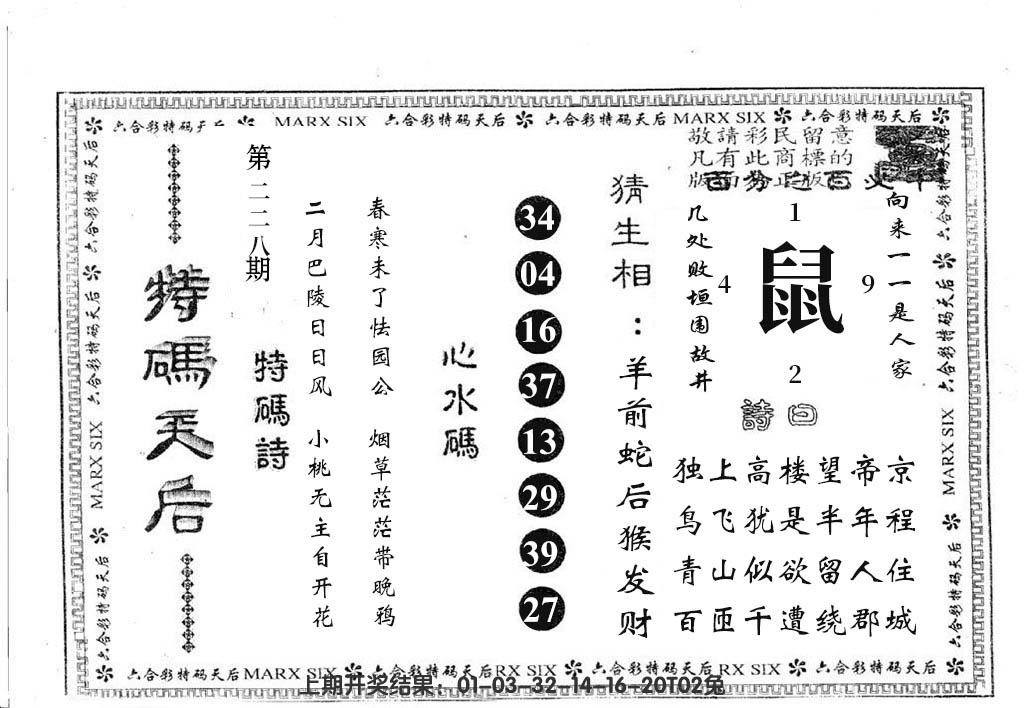 六合彩特码天后 MARX SIX 六合彩特码天后 六合彩特码天后 MARX SIX 六合彩特码天后
敬請彩民留意
凡有此商標的
特碼天后
第二二八期
特碼詩
二月巴陵日日风 小桃无主自开花
春寒未了怯园公 烟草茫茫带晚鸦
心水碼
34
04
16
37
13
29
39
27
猜生相：羊前蛇后猴发财
几处败垣围故井
向来一一是人家
1
4 鼠 9
2
詩曰
独上高楼望帝京
鸟飞犹是半年程
青山似欲留人住
百匝千遭绕郡城
六合彩特码天后 MARX SIX 六合彩特码天后
六合彩特码天后 MARX SIX 六合彩特码天后
六合彩特码天后MARX SIX 六合彩特码天后RX SIX 六合彩特码天后RX SIX 六合彩特码天后
上期开奖结果：01-03-32-14-16-20T02兔